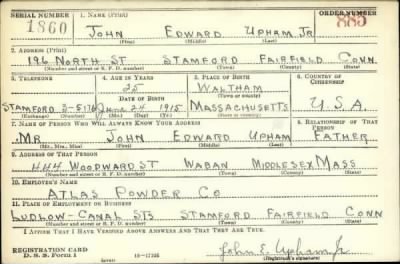 SERIAL NUMBER 1. NAME (Print) ORDER NUMBER
1860 JOHN EDWARD UPHAM, JR 885
(First) (Middle) (Last)
2. ADDRESS (Print)
196 NORTH ST STAMFORD FAIRFIELD CONN.
(Number and street or R. F. D. number) (Town) (County) (State)
3. TELEPHONE 4. AGE IN YEARS 5. PLACE OF BIRTH 6. COUNTRY OF CITIZENSHIP
25 WALTHAM
DATE OF BIRTH (Town or county)
STAMFORD 3-5176 June 24 1915 MASSACHUSETTS U.S.A.
(Exchange) (Number) (Mo.) (Day) (Yr.) (State or country)
7. NAME OF PERSON WHO WILL ALWAYS KNOW YOUR ADDRESS 8. RELATIONSHIP OF THAT PERSON
MR. JOHN EDWARD UPHAM FATHER
(Mr., Mrs., Miss) (First) (Middle) (Last)
9. ADDRESS OF THAT PERSON
444 WOODWARD ST WABAN MIDDLESEX MASS
(Number and street or R. F. D. number) (Town) (County) (State)
10. EMPLOYER'S NAME
ATLAS POWDER CO
11. PLACE OF EMPLOYMENT OR BUSINESS
LUDLOW-CANAL STS STAMFORD FAIRFIELD CONN
(Number and street or R. F. D. number) (Town) (County) (State)
I AFFIRM THAT I HAVE VERIFIED ABOVE ANSWERS AND THAT THEY ARE TRUE.
REGISTRATION CARD
D. S. S. Form 1 16-17105 John E. Upham Jr
(Registrant's signature)